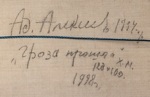 Ад. Алексеев 1997г.
„Гроза прошла" х.м.
120×160.
1998г.